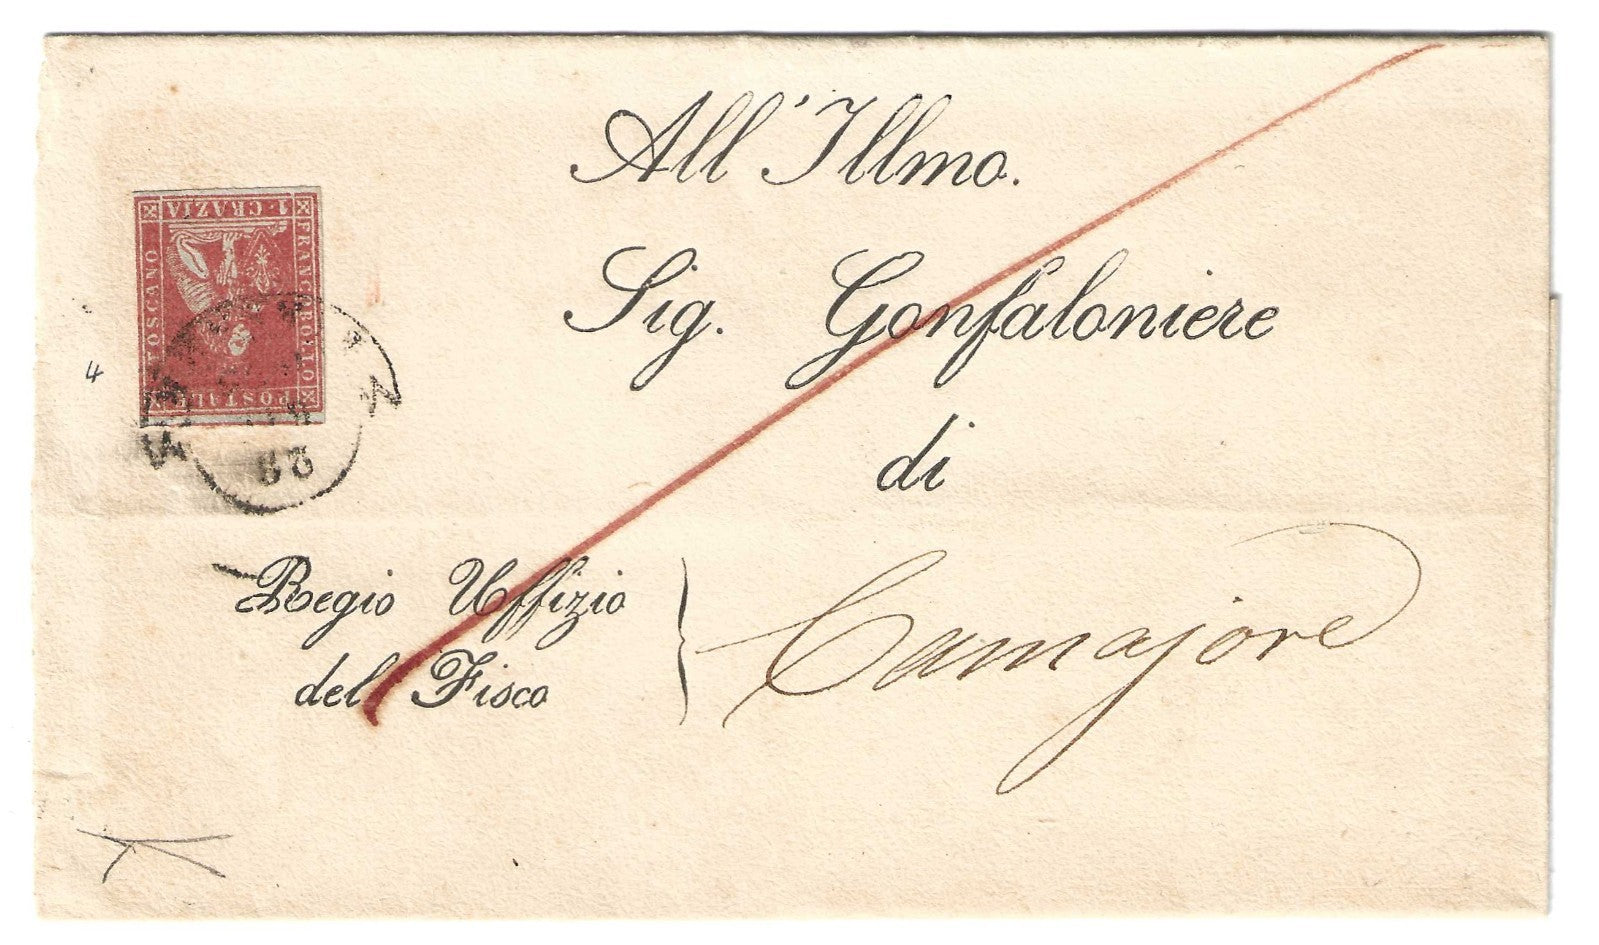 All'Illmo.
Sig. Gonfaloniere
di
Camajore
Regio Uffizio
del Fisco
FRANCOBOLLO
POSTALE
TOSCANO
1·CRAZIA
4